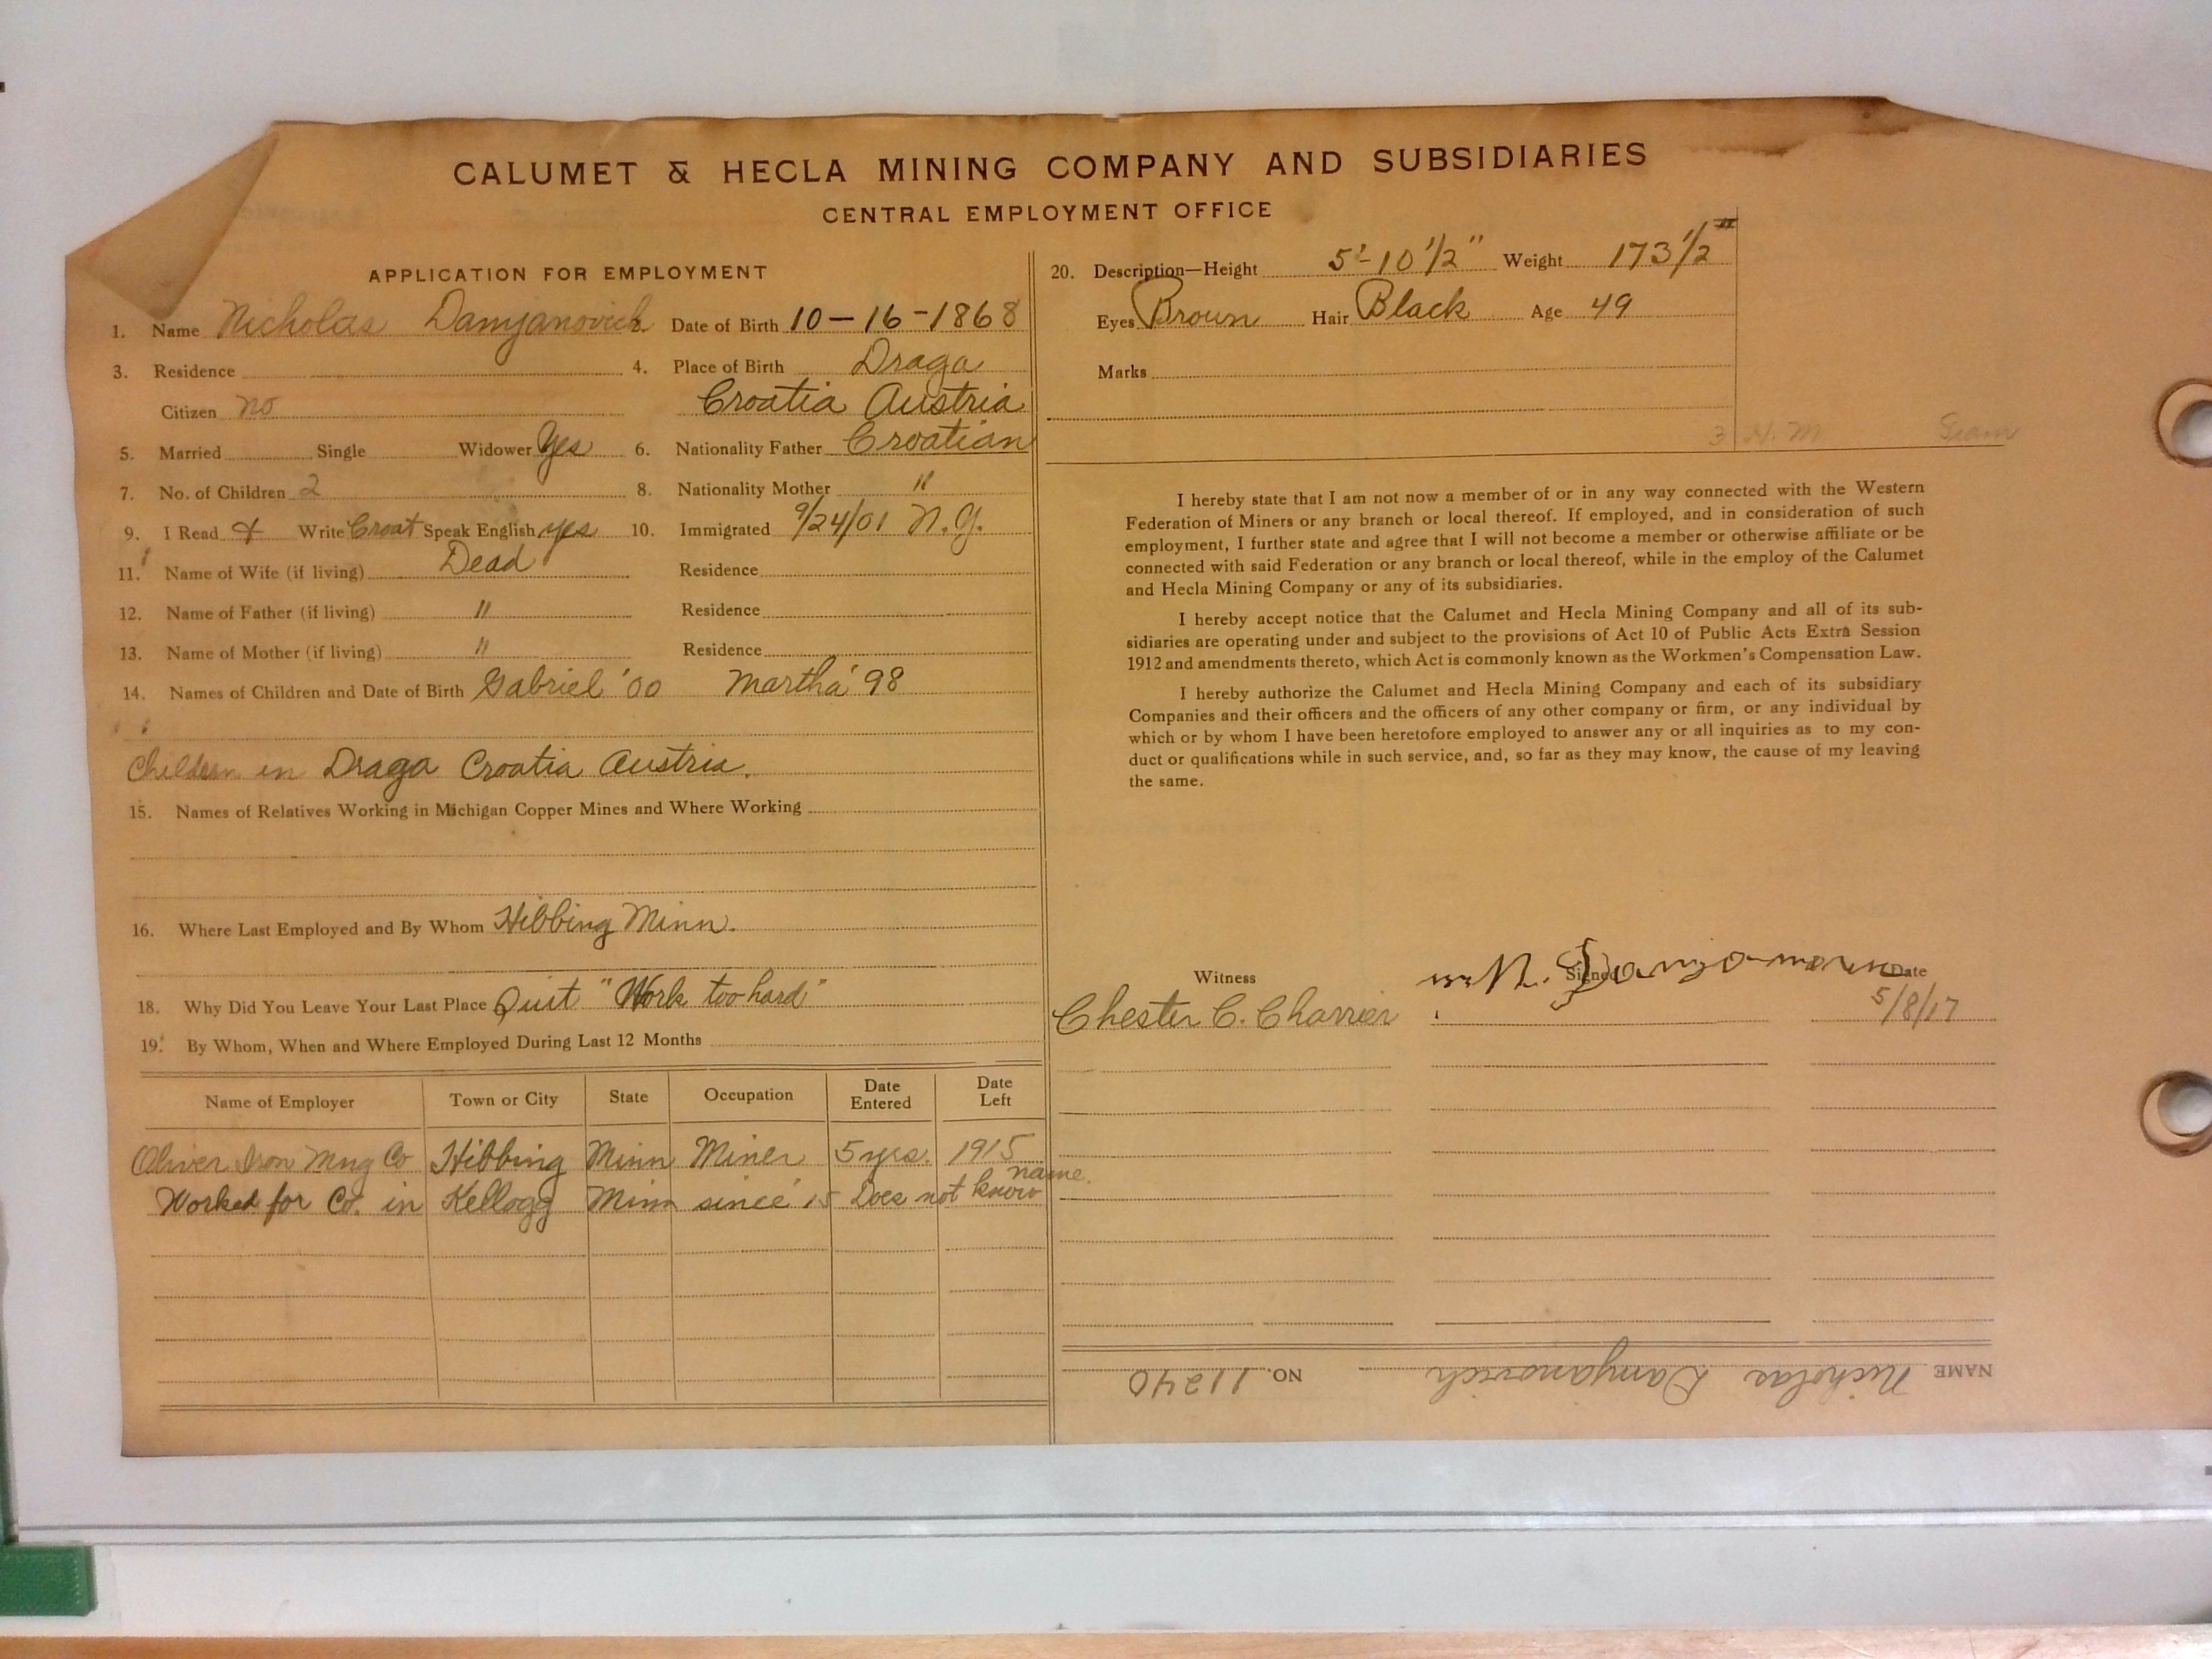 CALUMET & HECLA MINING COMPANY AND SUBSIDIARIES
CENTRAL EMPLOYMENT OFFICE
APPLICATION FOR EMPLOYMENT
1. Name Nicholas Damyanovich 2. Date of Birth 10-16-1868
3. Residence 4. Place of Birth Draga
Citizen no Croatia Austria
5. Married Single Widower Yes 6. Nationality Father Croatian
7. No. of Children 2 8. Nationality Mother "
9. I Read & Write Croat Speak English yes 10. Immigrated 9/24/01 N.Y.
11. Name of Wife (if living) Dead Residence
12. Name of Father (if living) " Residence
13. Name of Mother (if living) " Residence
14. Names of Children and Date of Birth Gabriel '00 Martha '98
Children in Draga Croatia Austria.
15. Names of Relatives Working in Michigan Copper Mines and Where Working
16. Where Last Employed and By Whom Hibbing Minn.
18. Why Did You Leave Your Last Place Quit "Work too hard"
19. By Whom, When and Where Employed During Last 12 Months
Name of Employer Town or City State Occupation Date Entered Date Left
Oliver Iron Mng Co Hibbing Minn Miner 5 yrs. 1915
Worked for Co. in Kellogg Minn since '15 Does not know name.
20. Description—Height 5'-10 1/2" Weight 173 1/2 #
Eyes Brown Hair Black Age 49
Marks
3 H. M
I hereby state that I am not now a member of or in any way connected with the Western
Federation of Miners or any branch or local thereof. If employed, and in consideration of such
employment, I further state and agree that I will not become a member or otherwise affiliate or be
connected with said Federation or any branch or local thereof, while in the employ of the Calumet
and Hecla Mining Company or any of its subsidiaries.
I hereby accept notice that the Calumet and Hecla Mining Company and all of its sub-
sidiaries are operating under and subject to the provisions of Act 10 of Public Acts Extra Session
1912 and amendments thereto, which Act is commonly known as the Workmen's Compensation Law.
I hereby authorize the Calumet and Hecla Mining Company and each of its subsidiary
Companies and their officers and the officers of any other company or firm, or any individual by
which or by whom I have been heretofore employed to answer any or all inquiries as to my con-
duct or qualifications while in such service, and, so far as they may know, the cause of my leaving
the same.
Witness Signed Date
Chester C. Charrier 5/8/17
NAME Nicholas Damyanovich NO. 11240